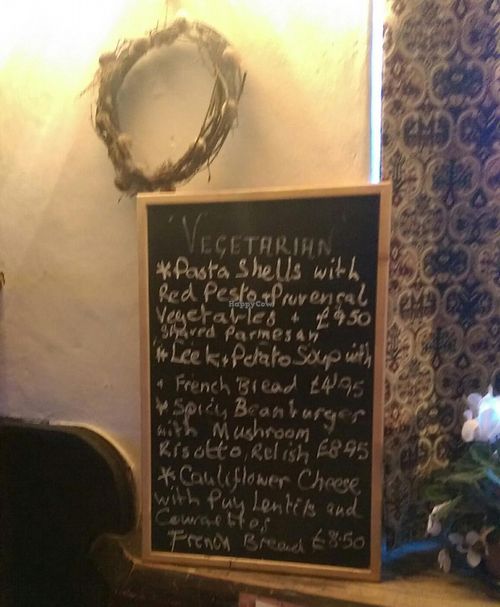 "VEGETARIAN"
* Pasta Shells with
Red Pesto + Provencal
Vegetables + £9.50
Shaved Parmesan
* Leek + Potato Soup with
+ French Bread £4.95
* Spicy Beanburger
with Mushroom
Risotto, Relish £8.95
* Cauliflower Cheese
with Puy Lentils and
Courgettes
French Bread £8.50
HappyCow